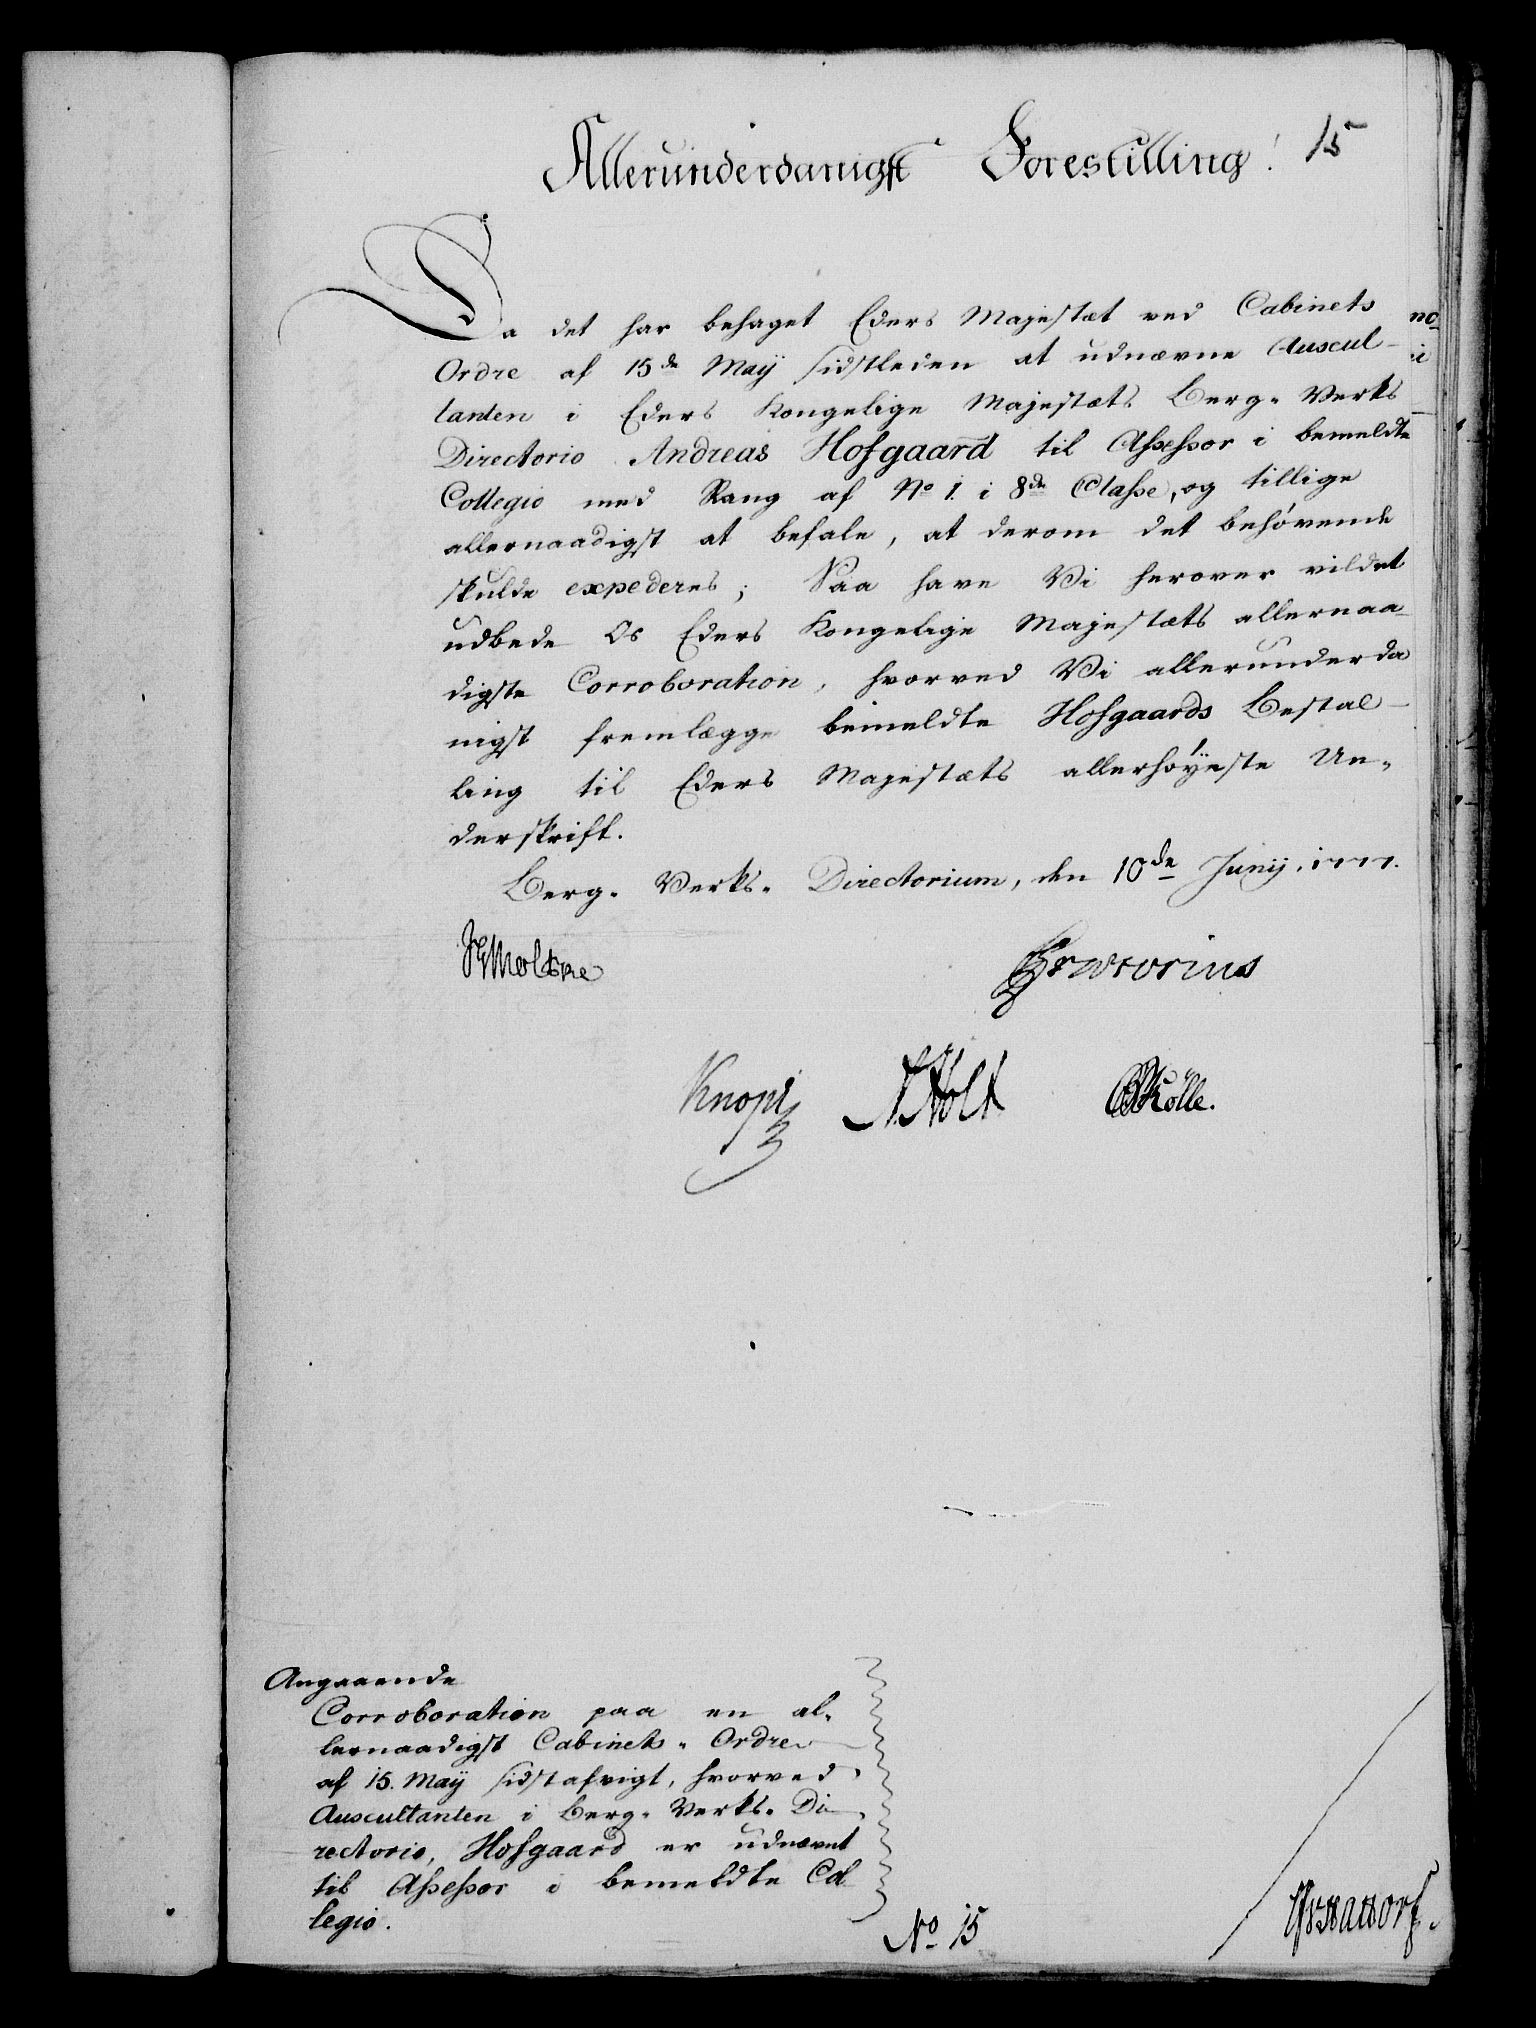 Allerunderdanigst Forestilling! 15
Da det har behaget Eders Majestæt ved Cabinets
Ordre af 15de Maÿ sidstleden at udnævne Auscul-
tanten i Eders Kongelige Majestæts Berg- Verks
Directorio Andreas Hofgaard til Assessor i bemeldte
Collegio med Rang af No 1. i 8de Classe, og tillige
allernaadigst at befale, at derom det behøvende
skulde expederes; Saa have Vi herover vildet
udbede Os Eders Kongelige Majestæts allernaa-
digste Corroboration, hvorved Vi allerunderda
nigst fremlægge bemeldte Hofgaards Bestal-
ling til Eders Majestæts allerhøÿeste Un-
derskrift.
Berg- Verks- Directorium, den 10de Junÿ. 1777.
Moltke Prætorius
Knopf N. Holt Kölle.
Angaaende
Corroboration paa en al-
lernaadigst Cabinets- Ordre
af 15. Maÿ sidstafvigt, hvorved
Auscultanten i Berg- Verks- Di-
rectorio, Hofgaard er udnævnt
til Assessor i bemeldte Col
legio.
No 15